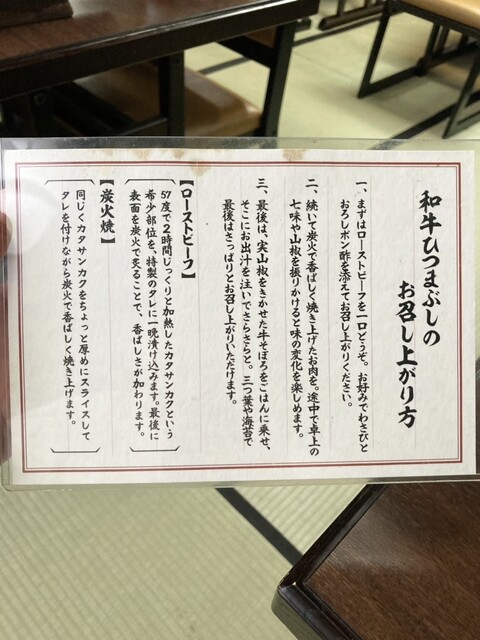 和牛ひつまぶしの
お召し上がり方
一、まずはローストビーフを一口どうぞ。お好みでわさびと
おろしポン酢を添えてお召し上がりください。
二、続いて炭火で香ばしく焼き上げたお肉を。途中で卓上の
七味や山椒を振りかけると味の変化を楽しめます。
三、最後は、実山椒をきかせた牛そぼろをごはんに乗せ、
そこにお出汁を注いでさらさらと。三つ葉や海苔で
最後はさっぱりとお召し上がりいただけます。
【ローストビーフ】
57度で2時間じっくりと加熱したカタサンカクという
希少部位を、特製のタレに一晩漬け込みます。最後に
表面を炭火で炙ることで、香ばしさが加わります。
【炭火焼】
同じくカタサンカクをちょっと厚めにスライスして
タレを付けながら炭火で香ばしく焼き上げます。